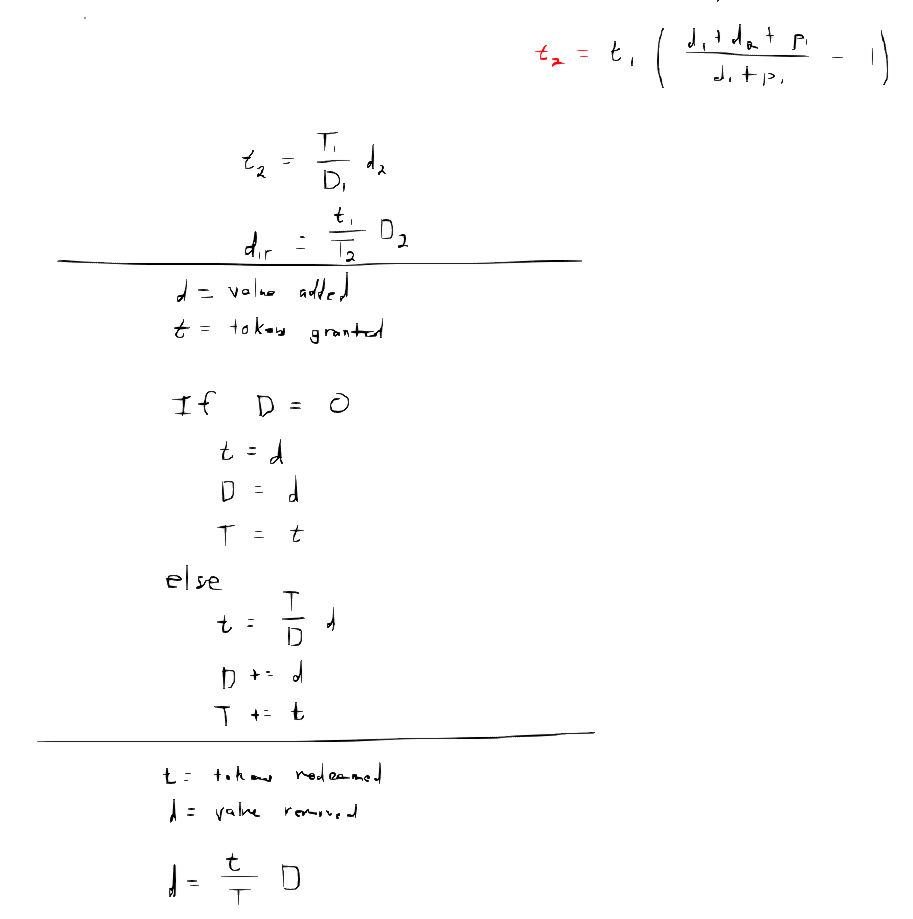 t₂ = t₁ ( (d₁ + d₂ + p₁) / (d₁ + p₁) - 1 )
t₂ = T₁/D₁ d₂
d₁r = t₁/T₂ D₂
d = value added
t = tokens granted
If D = 0
t = d
D = d
T = t
else
t = T/D d
D += d
T += t
t = tokens redeemed
d = value removed
d = t/T D